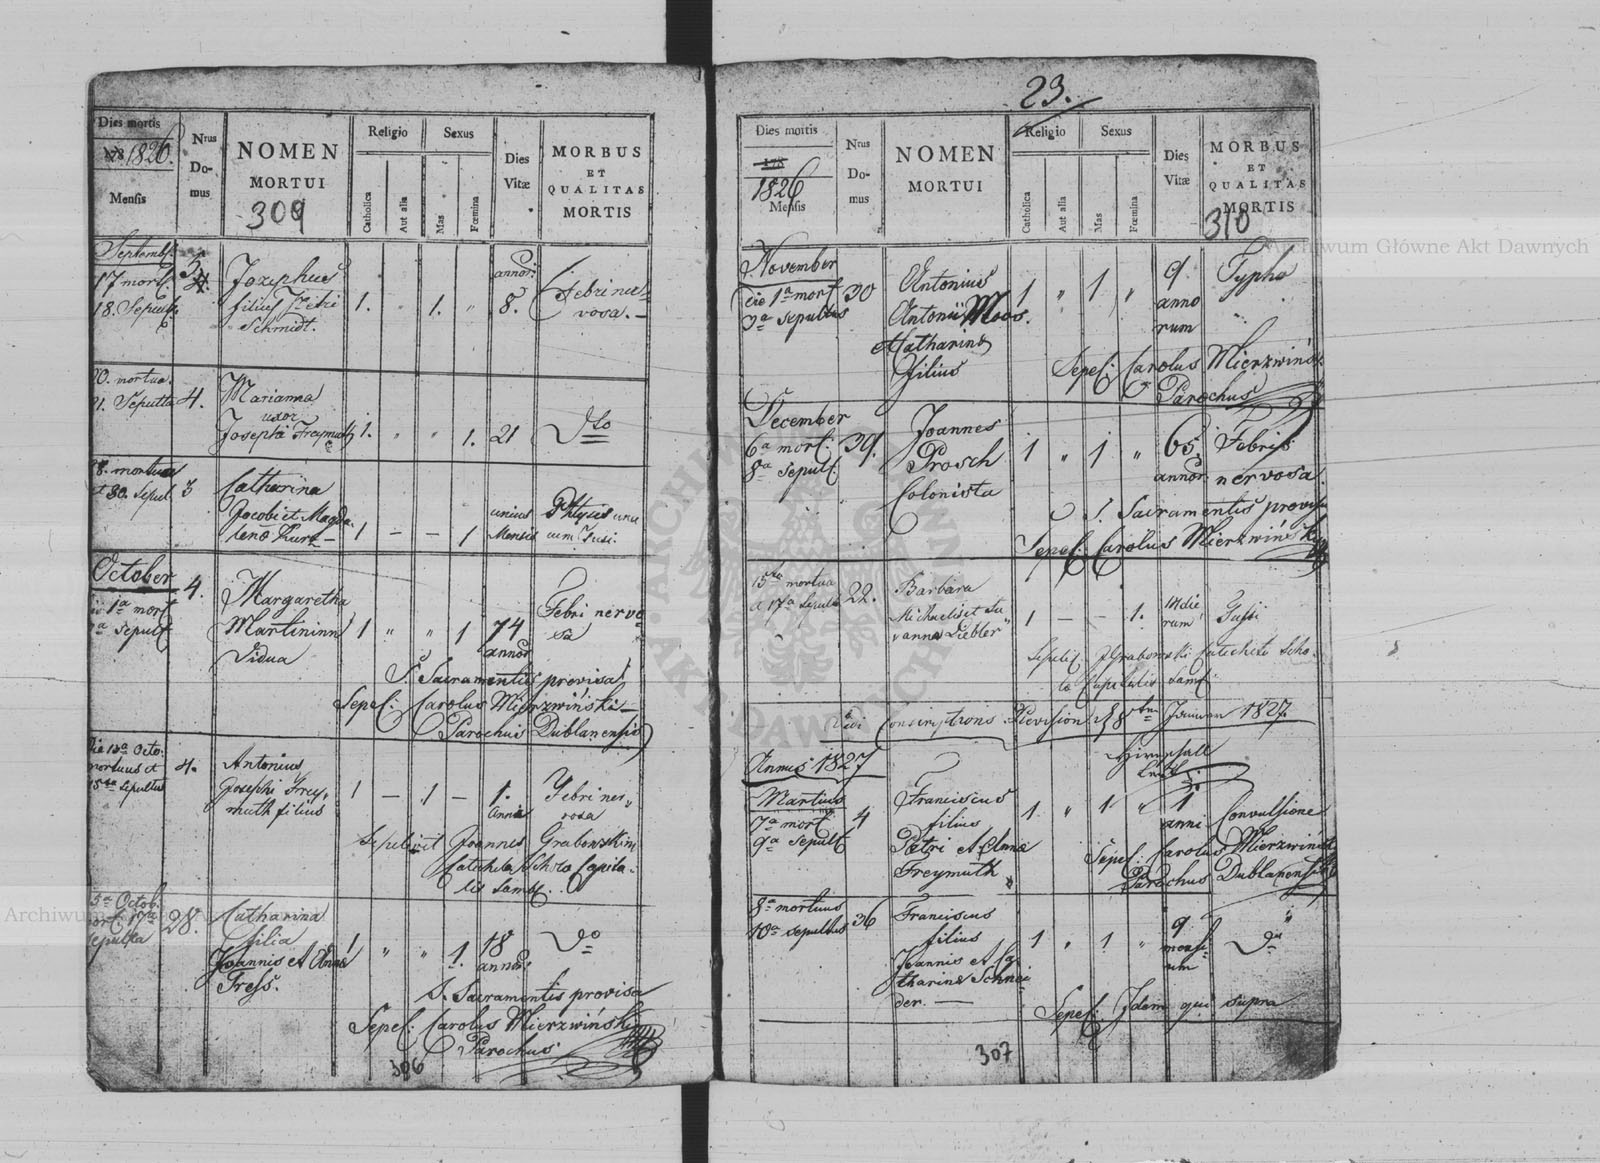 Dies mortis
178 1826.
Mensis
Nrus
Do-
mus
NOMEN
MORTUI
309
Religio
Catholica
Aut alia
Sexus
Mas
Fœmina
Dies
Vitæ
MORBUS
ET
QUALITAS
MORTIS
Septemb.
17 mort.
18. Sepult.
Josephus
filius
Schmidt.
1. " 1. "
annor.
8.
Febri ner-
vosa.
20. mortua.
21. Sepulta
4.
Marianna
uxor
Josephi Freymuth
1. " " 1. 21
Dto
28. mortua
et 30. Sepul.
3
Catharina
Jacobi et Magda-
lena Kurz
1 – – 1
unius
Mensis
Phtysis una
cum Tusi.
October
die 1ª mort
sepult
4.
Margaretha
Martininn
Vidua
1 " " 1
74
annor
Febri nervo
sa
S. Sacramentis provisa
Sepel: Carolus Mierzwiński
Parochus Dublanensis
Die 13ª Octo.
mortuus et
15ta sepultus
4.
Antonius
Josephi Frey-
muth filius
1 – 1 –
1.
Anni
Febri ner-
vosa
Sepelivit Joannes Grabowski
Catecheta Schola Capita-
lis Samb.
15ª Octob.
mort. 17ª
sepulta
28.
Catharina
filia
Joannis et Anna
Tress.
1 " " 1.
18
annor.
Do
S. Sacramentis provisa
Sepel: Carolus Mierzwiński
Parochus
306
23.
Dies mortis
178
1826
Mensis
Nrus
Do-
mus
NOMEN
MORTUI
Religio
Catholica
Aut alia
Sexus
Mas
Fœmina
Dies
Vitæ
MORBUS
ET
QUALITAS
MORTIS
310
Archiwum Główne Akt Dawnych
November
die 1ª mort
3ª sepultus
30
Antonius
Antonii Moos.
et Catharina
Filius
1 " 1 "
9
anno
rum
Typho
Sepel: Carolus Mierzwiński
Parochus
December
6ª mort.
8ª sepult.
39.
Joannes
Prosch
Colonista
1 " 1 "
65.
annor.
Febris
nervosa.
S. Sacramentis provisus
Sepel: Carolus Mierzwiński
15ta mortua
et 17ª sepulta
22.
Barbara
Michaelis et Su
vanna Liebler
1 – – 1.
14 die
rum
Tussi
Sepeliv. J. Grabowski Catecheta Scho-
la Capitalis Samb.
Vidi Conscriptions Revision 8ten Januar 1827.
Annus 1827
Martius
7ª mort
9ª sepult
4
Franciscus
filius
Petri et Anna
Freymuth
1 " 1 "
1
anni
Convulsione
Sepel: Carolus Mierzwiński
Parochus Dublanensis
8ª mortuus
10ª sepultus
36
Franciscus
filius
Joannis et Ca
tharina Schnei
der.
1 " 1 "
9
mensi-
um
Do
Sepel: Idem qui supra
307
Archiwum